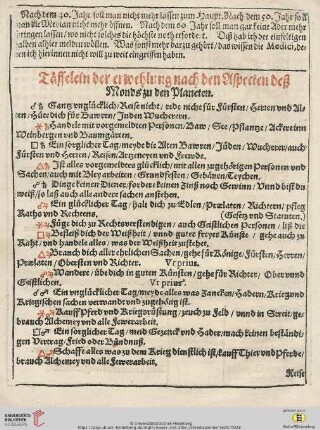 Nach dem 40. Jahr soll man nicht mehr lassen zum Haupt. Nach dem 50. Jahr so
man die Median nicht mehr öffnen. Nach dem 60. Jahr soll man gar keine Ader mehr
springen lassen / wo nicht solches die höchste noth erfordert. Diß hab ich der einfeltigen
halben alhier melden wöllen. Was sonst mehr darzu gehört / das wissen die Medici, de-
nen ich hierinnen nicht will zu weit eingriffen haben.
Täffelein der erwehlung nach den Aspecten deß
Monds zu den Planeten.
☌♄ Gantz unglücklich / Reise nicht / rede nicht für Fürsten / Herren und Al-
ten / Hüte dich für Bawren / Juden Wucherern.
⚹♄ Handele mit vorgemeldten Personen / Baw / See / Pflantze / Ackere inn
Weinberger und Baumgärten.
□♄ Ein sorglicher Tag / meyde die Alten Bawren / Jüden / Wucherer / auch
Fürsten und Herren / Reisen / Artzeneyen und Frewde.
△♄ Ist alles vorgemeldtes glücklich / mit allen zugehörigen Personen und
Sachen / auch mit Bleyarbeiten / Grundfesten / Gebäwen / Teychen.
☍♄ Dinge keinen Diener / fordere keinen Zinß noch Gewinn / Unnd bist du
weiß / so laß auch alle andere sachen anstehen.
☌♃ Ein glücklicher Tag / halt dich zu Edlen / Prælaten / Richtern / pfleg
Raths und Rechtens. (Gesetz und Statuten.)
⚹♃ Füge dich zu Rechtsverstendigen / auch Geistlichen Personen / liß die
□♃ Befleiß dich der Weißheit / unnd guter freyer Künste / gehe auch zu
Raht / und handele alles / was der Weißheit zustehet.
△♃ Brauch dich aller ehrlichen Sachen / gehe für Könige / Fürsten / Herren /
Prælaten / Obersten und Richter. Ut prius.
☍♃ Wandere / übe dich in guten Künsten / gehe für Richter / Ober unnd
Geistlichen. Ut prius.
☌♂ Ein unglücklicher Tag / meyde alles was Zancken / Hadern / Krieg und
Kriegischen sachen verwandt und zugehörig ist.
⚹♂ Kauff Pferd und Kriegsrüstung / zeuch zu Feld / unnd in Streit / ge-
brauch Alchemey und alle Fewerarbeit.
□♂ Ein sorglicher Tag / meid Gezenck und Hader / mach keinen bestendi-
gen Vertrag / Fried oder Bündnuß.
△♂ Schaffe alles was zu dem Krieg dienstlich ist / kauff Thier und Pferde /
brauch Alchemey und alle Fewerarbeit.
Reise
© Universitätsbibliothek Heidelberg